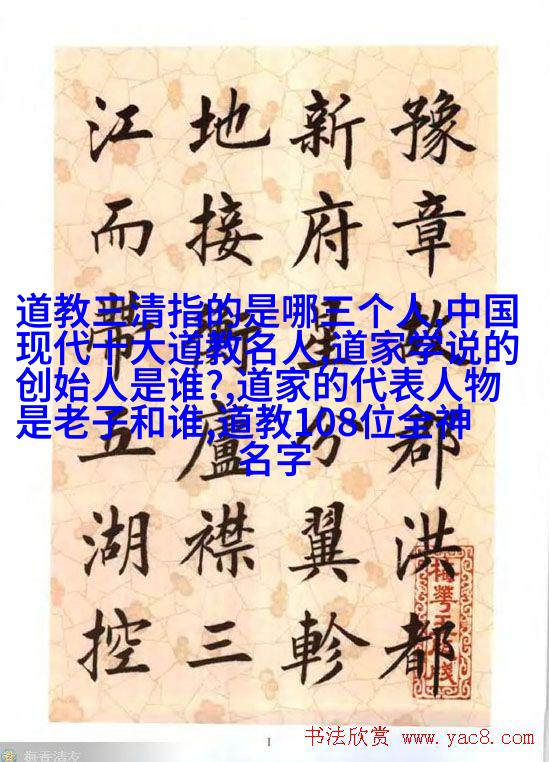 道教三清指的是哪三个人,中国
现代十大道教名人,道家学说的
创始人是谁?,道家的代表人物
是老子和谁,道教108位全神
名字
豫章故郡洪都
新府星分翼軫
地接衡廬襟三
江而帶五湖控
1
书法欣赏 www.yac8.com